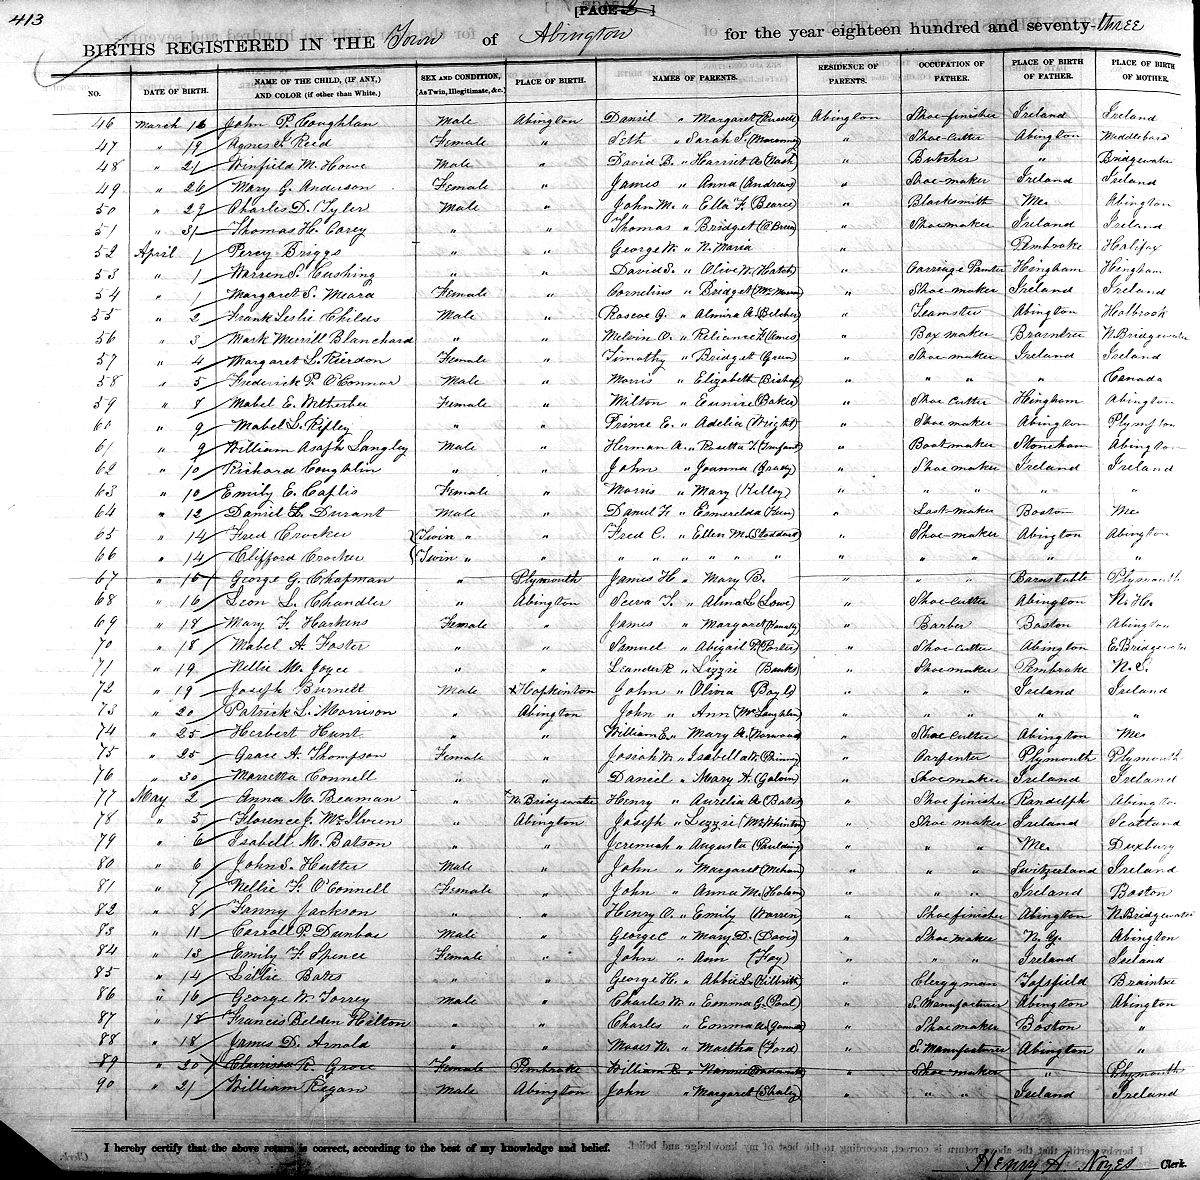 413
[PAGE 3 ]
BIRTHS REGISTERED IN THE Town of Abington for the year eighteen hundred and seventy-three
NO. DATE OF BIRTH. NAME OF THE CHILD, (IF ANY,) AND COLOR (if other than White.) SEX AND CONDITION, As Twin, Illegitimate, &c.) PLACE OF BIRTH. NAMES OF PARENTS. RESIDENCE OF PARENTS. OCCUPATION OF FATHER. PLACE OF BIRTH OF FATHER. PLACE OF BIRTH OF MOTHER.
46 March 16 John P. Coughlan Male Abington Daniel " Margaret Abington Shoe-finisher Ireland Ireland
47 " 19 Agnes Reid Female " Seth " Sarah J. " Shoe-cutter Abington Middleboro
48 " 21 Winfield M. Howe Male " David B. " Harriet A. (Nash) " Butcher " Bridgewater
49 " 26 Mary G. Anderson Female " James " Anna (Andrews) " Shoe-maker Ireland Ireland
50 " 29 Charles D. Tyler Male " John M. " Ella F. (Bearce) " Blacksmith Me. Abington
51 " 31 Thomas H. Carey " " Thomas " Bridget (O'Brien) " Shoemaker Ireland Ireland
52 April 1 Percy Briggs " " George W. " N. Maria " Pembroke Halifax
53 " 1 Warren S. Cushing " " David S. " Olive W. (Hatch) " Carriage Painter Hingham Hingham
54 " 1 Margaret S. Meara Female " Cornelius " Bridget " Shoe-maker Ireland Ireland
55 " 2 Frank Leslie Childs Male " Roscoe G. " Almira A. (Belcher) " Teamster Abington Holbrook
56 " 3 Mark Merritt Blanchard " " Melvin O. " Reliance H. (Ames) " Box maker Braintree N. Bridgewater
57 " 4 Margaret L. Rierdon Female " Timothy " Bridget (Green) " Shoe-maker Ireland Ireland
58 " 5 Frederick P. O'Connor Male " Morris " Elizabeth (Bishop) " " " " Canada
59 " 8 Mabel E. Witherbee Female " Milton " Eunice (Baker) " Shoe cutter Hingham Abington
60 " 9 Mabel L. Ripley " " Prince E. " Adelia (Wright) " Shoe maker Abington Plympton
61 " 9 William Asaph Langley Male " Herman A. " Rosetta T. " Bootmaker Stoneham Abington
62 " 10 Richard Coughlin " " John " Joanna (Brady) " Shoe maker Ireland Ireland
63 " 10 Emily E. Caplis Female " Morris " Mary (Killey) " " " " "
64 " 12 Daniel L. Durant Male " Daniel F. " Esmerelda " Last-maker Boston Me
65 " 14 Fred Crocker (Twin " " Fred C. " Ellen M. (Stoddard) " Shoe-maker Abington Abington
66 " 14 Clifford Crocker (Twin " " " " " " " " " " " "
67 " 15 George G. Chapman " Plymouth James H. " Mary B. " " " Barnstable Plymouth
68 " 16 Leon L. Chandler " Abington Seeva T. " Alma L. (Lowe) " Shoe-cutter Abington N. H.
69 " 18 Mary F. Harkins Female " James " Margaret " Barber Boston Abington
70 " 18 Mabel A. Foster " " Samuel " Abigail P. (Porter) " Shoe-cutter Abington E. Bridgewater
71 " 19 Nellie M. Joyce " " Leander R. " Lizzie (Banks) " Shoemaker Pembroke N. S.
72 " 19 Joseph Burnett Male x Hopkinton John " Olivia (Boyle) " " " Ireland Ireland
73 " 20 Patrick L. Morrison " Abington John " Ann (McLaughlin) " " " " "
74 " 25 Herbert Hunt " " William E. " Mary A. (Norwood) " Shoe cutter Abington Me
75 " 25 Grace A. Thompson Female " Josiah W. " Isabella " Carpenter Plymouth Plymouth
76 " 30 Marietta Connell " " Daniel " Mary A. (Galvin) " Shoemaker Ireland Ireland
77 May 2 Anna M. Beaman " x N. Bridgewater Henry " Aurelia A. (Bates) " Shoe finisher Randolph Abington
78 " 5 Florence J. McIlveen " Abington Joseph " Lizzie " Shoe maker Ireland Scotland
79 " 6 Isabell M. Batson " " Jeremiah " Augusta (Paulding) " " " Me. Duxbury
80 " 6 John S. Hutter Male " John " Margaret (Mehan) " " " Switzerland Ireland
81 " 7 Nellie F. O'Connell Female " John " Anna M. " " " Ireland Boston
82 " 8 Fanny Jackson " " Henry O. " Emily (Warren) " Shoe finisher Abington N. Bridgewater
83 " 11 Carroll P. Dunbar Male " George C " Mary D. (Davis) " Shoe maker N. Y. Abington
84 " 13 Emily F. Spence Female " John " Ann (Foy) " " " Ireland Ireland
85 " 14 Lillie Bates " " George H. " Abbie L. " Clergyman Topsfield Braintree
86 " 16 George W. Torrey Male " Charles W. " Emma G. (Pool) " S. Manufacturer Abington Abington
87 " 18 Francis Belden Hilton " " Charles " Emma A. " Shoemaker Boston "
88 " 18 James D. Arnold " " Moses N. " Martha (Ford) " S. Manufacturer Abington "
89 " 20 Clarissa R. Grove Female Pembroke William R. " Nannie " Shoe maker " Plymouth
90 " 21 William Regan Male Abington John " Margaret (Shaley) " " " Ireland Ireland
I hereby certify that the above return is correct, according to the best of my knowledge and belief.
Henry A. Noyes Clerk.